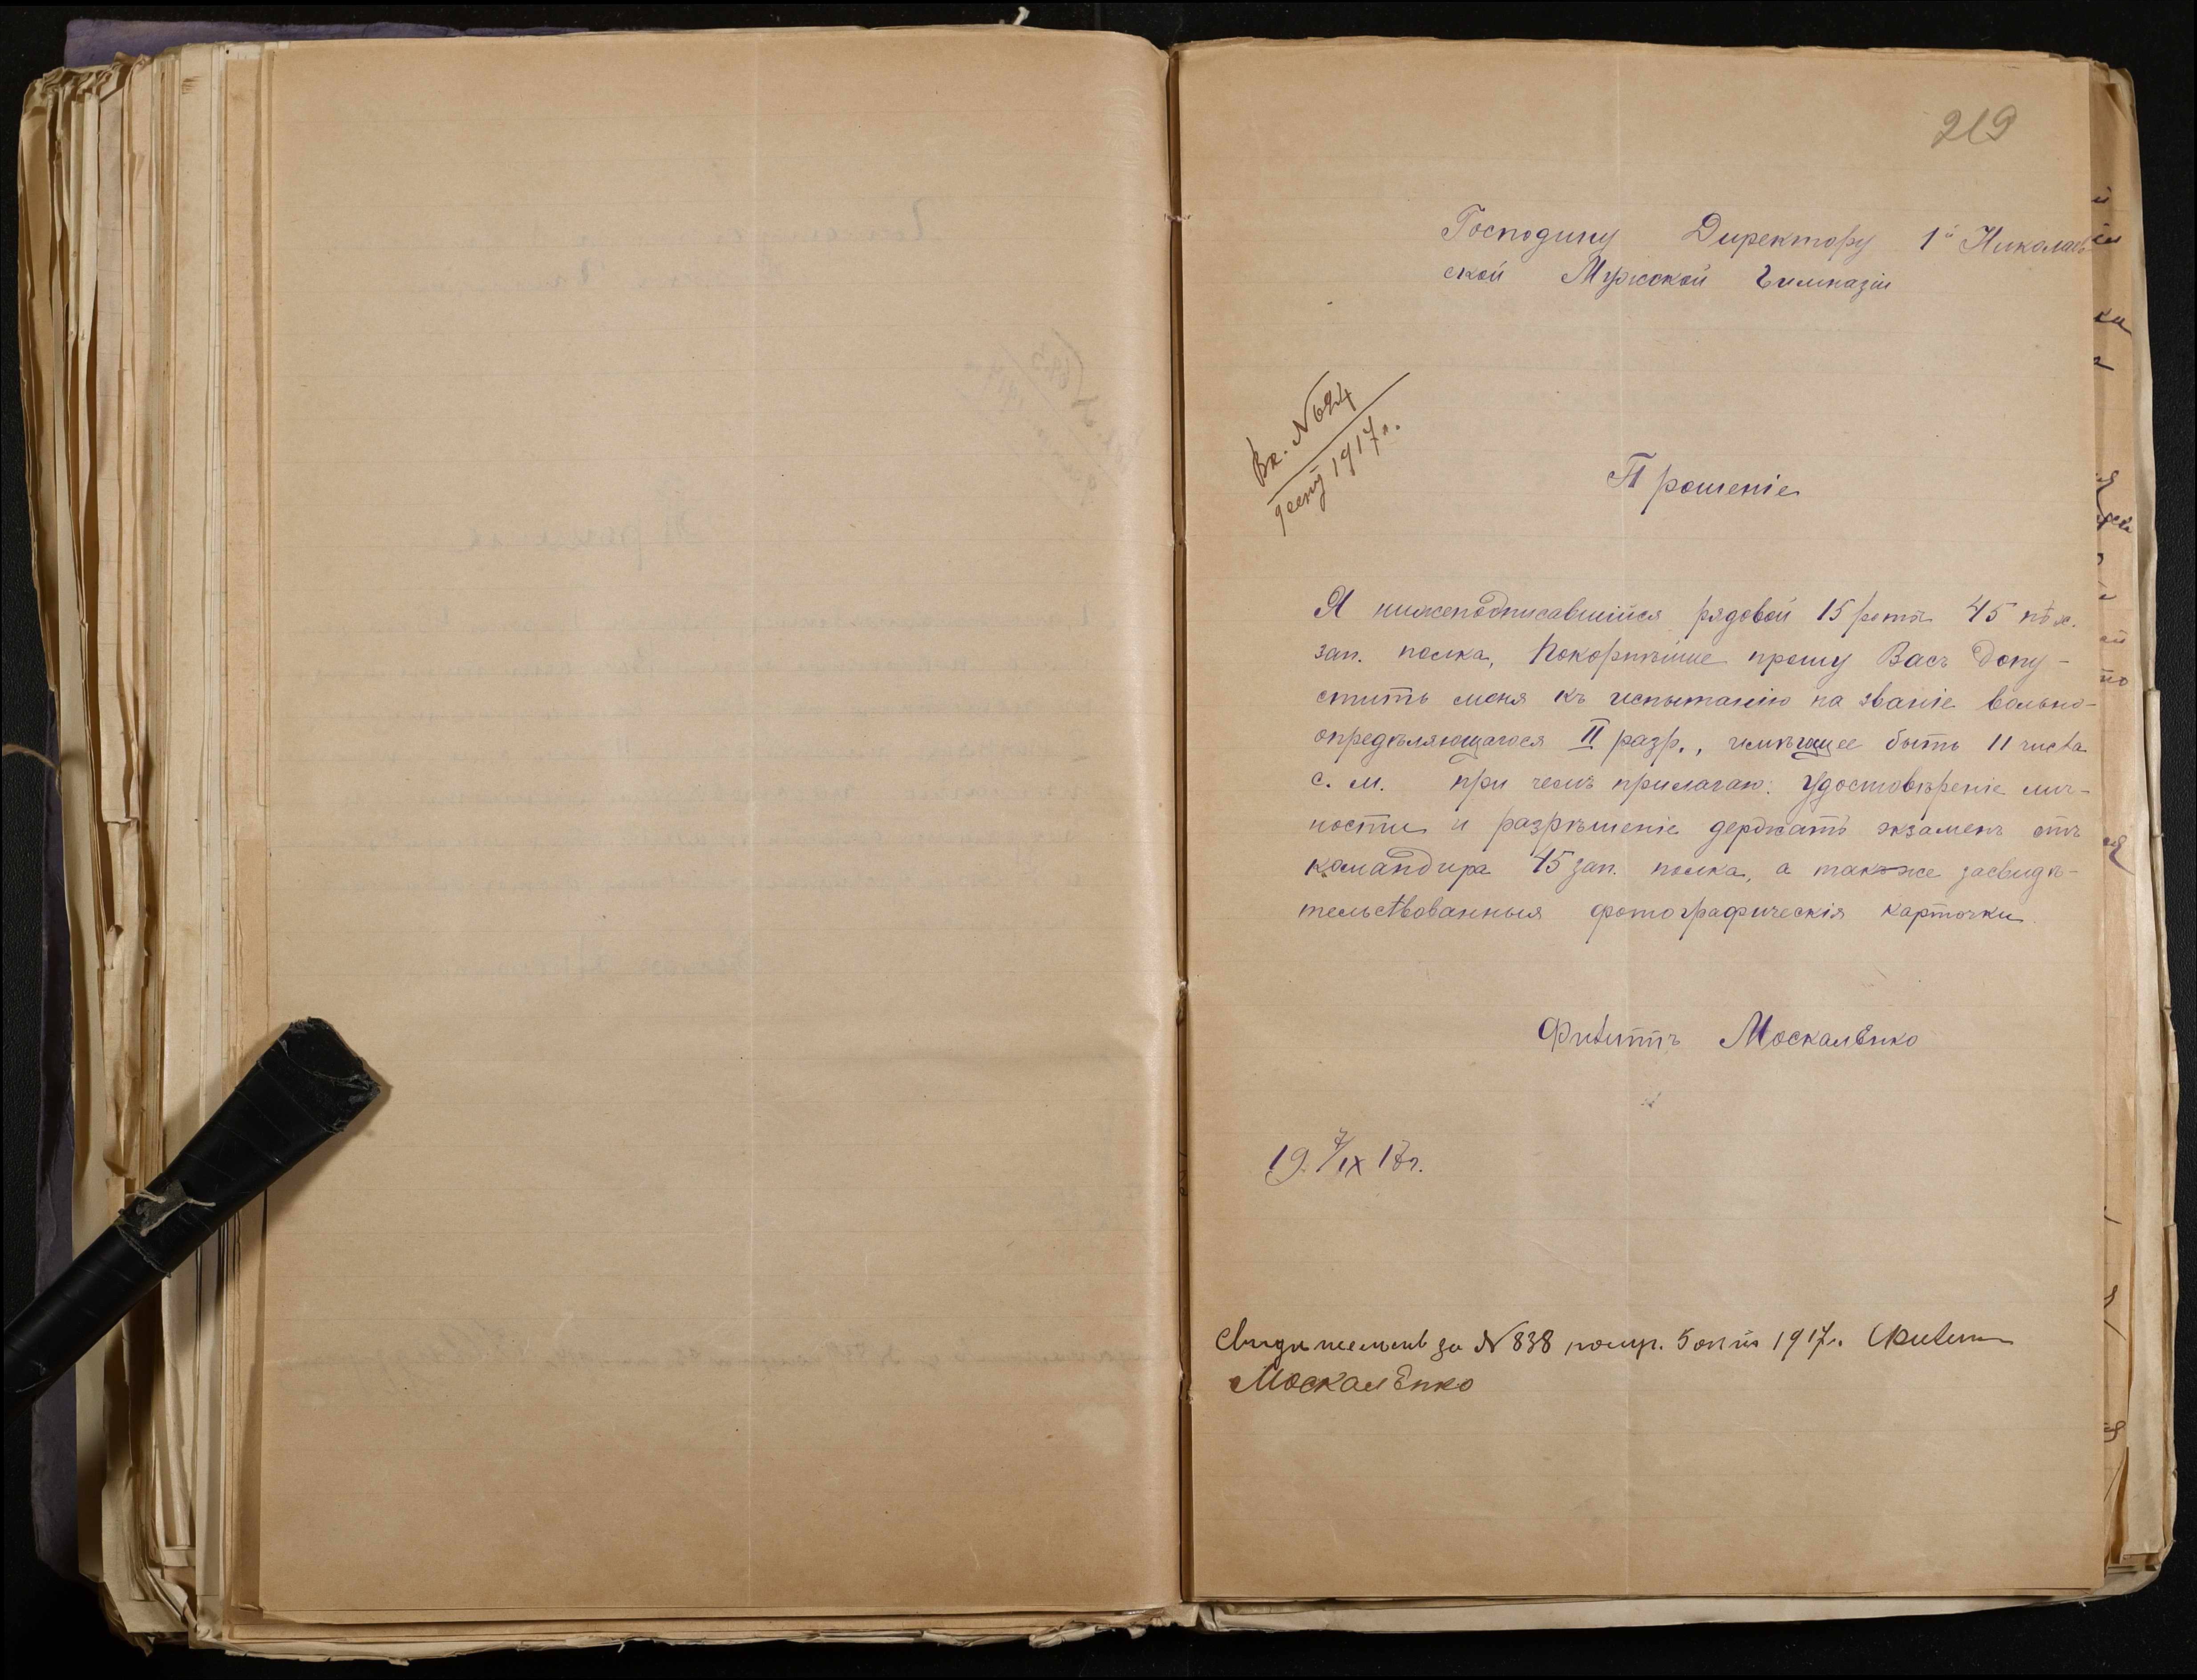 219
Господину Директору 1й Николаев
ской Мужской Гимназіи
Вх. № 624
9 сент 1917 г.
Прошеніе
Я нижеподписавшийся рядовой 15 роты 45 пѣх.
зап. полка, покорнѣйше прошу Васъ допу-
стить меня къ испытанію на званіе вольно-
опредѣляющагося II разр., имѣющее быть 11 числа
с. м. при чемъ прилагаю: Удостовѣреніе лич-
ности и разрѣшеніе держать экзаменъ отъ
командира 45 зап. полка, а также засвидѣ-
тельствованныя фотографическія карточки
Москаленко
19 7/IX 17 г.
за № 838 получ. 5 1917 г.
Москаленко